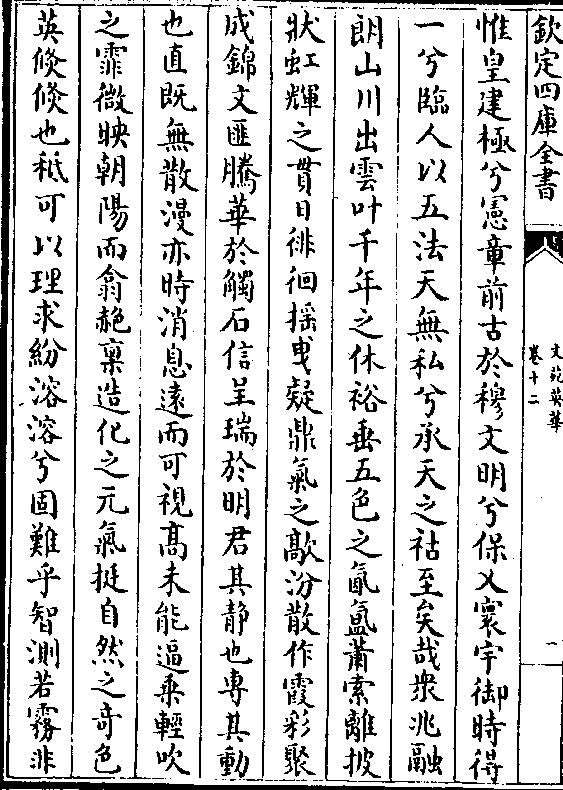 欽定四庫全書
文苑英華
卷十二
一
惟皇建極兮憲章前古於穆文明兮保乂寰宇御時得
一兮臨人以五法天無私兮承天之祜至矣哉衆兆融
朗山川出雲叶千年之休裕垂五色之氤氳蕭索離披
狀虹輝之貫日徘徊揺曳疑鼎氣之歊汾散作霞彩聚
成錦文匪騰華於觸石信呈瑞於明君其静也専其動
也直既無散漫亦時消息遠而可視髙未能逼乗輕吹
之霏微映朝陽而翕赩稟造化之元氣挺自然之奇色
英倐倐也秪可以理求紛溶溶兮固難乎智測若霧非